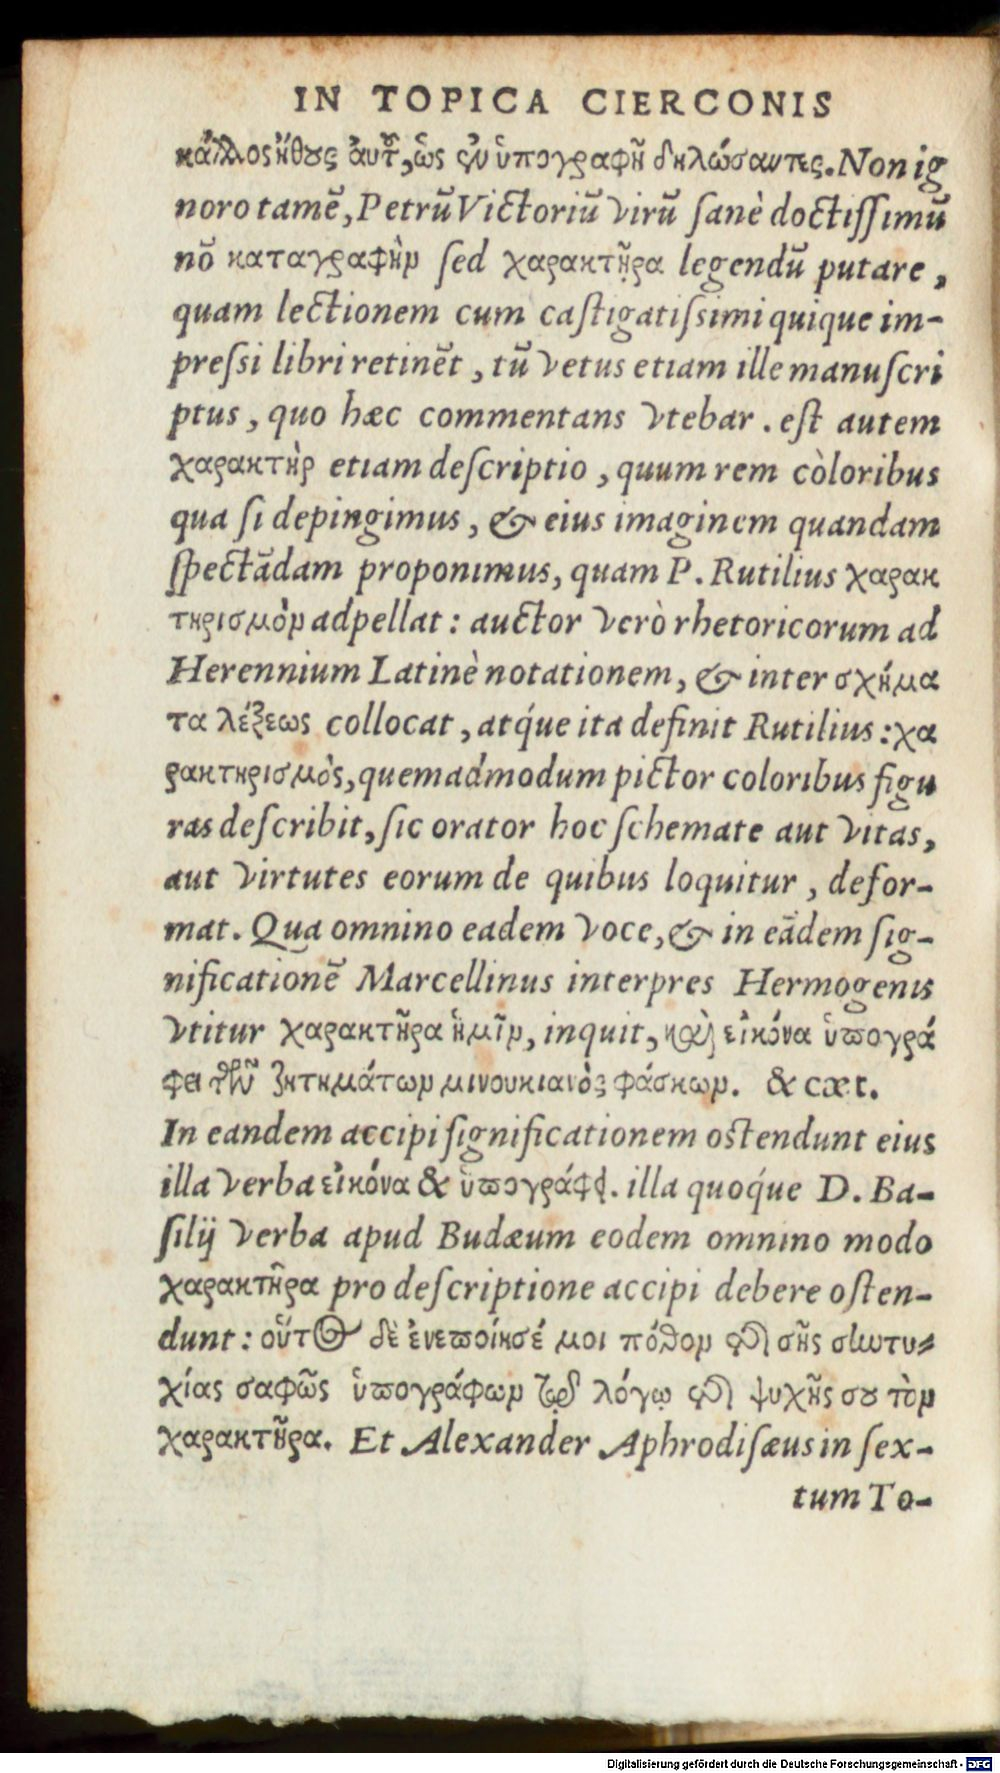 IN TOPICA CIERCONIS
κάλλος ἤθους αὐτ͂, ὡς ἐν ὑπογραφῇ δηλώσαντες. Non ig
noro tamē, Petrū Victoriū virū sanè doctissimū
nō καταγραφὴν sed χαρακτῆρα legendū putare,
quam lectionem cum castigatissimi quique im-
pressi libri retinēt, tū vetus etiam ille manuscri
ptus, quo hæc commentans vtebar. est autem
χαρακτὴρ etiam descriptio, quum rem còloribus
qua si depingimus, & eius imaginem quandam
spectādam proponimus, quam P. Rutilius χαρακ
τηρισμὸν adpellat: auctor verò rhetoricorum ad
Herennium Latinè notationem, & inter σχήμα
τα λέξεως collocat, atq́ue ita definit Rutilius: χα
ρακτηρισμὸς, quemadmodum pictor coloribus figu
ras describit, sic orator hoc schemate aut vitas,
aut virtutes eorum de quibus loquitur, defor-
mat. Qua omnino eadem voce, & in eādem sig-
nificationē Marcellinus interpres Hermogenis
vtitur χαρακτῆρα ἡμῖν, inquit, καὶ εἰκόνα ὑπογρά
φει τῶν ζητημάτων μινουκιανὸς φάσκων. & cæt.
In eandem accipi significationem ostendunt eius
illa verba εἰκόνα & ὑπογράφει. illa quoq́ue D. Ba-
silij verba apud Budæum eodem omnino modo
χαρακτῆρα pro descriptione accipi debere osten-
dunt: οὕτος δὲ ἐνεποίησέ μοι πόθον τῆς σῆς συντυ-
χίας σαφῶς ὑπογράφων τῷ λόγῳ τῆς ψυχῆς σου τὸν
χαρακτῆρα. Et Alexander Aphrodisæus in sex-
tum To-
Digitalisierung gefördert durch die Deutsche Forschungsgemeinschaft - DFG